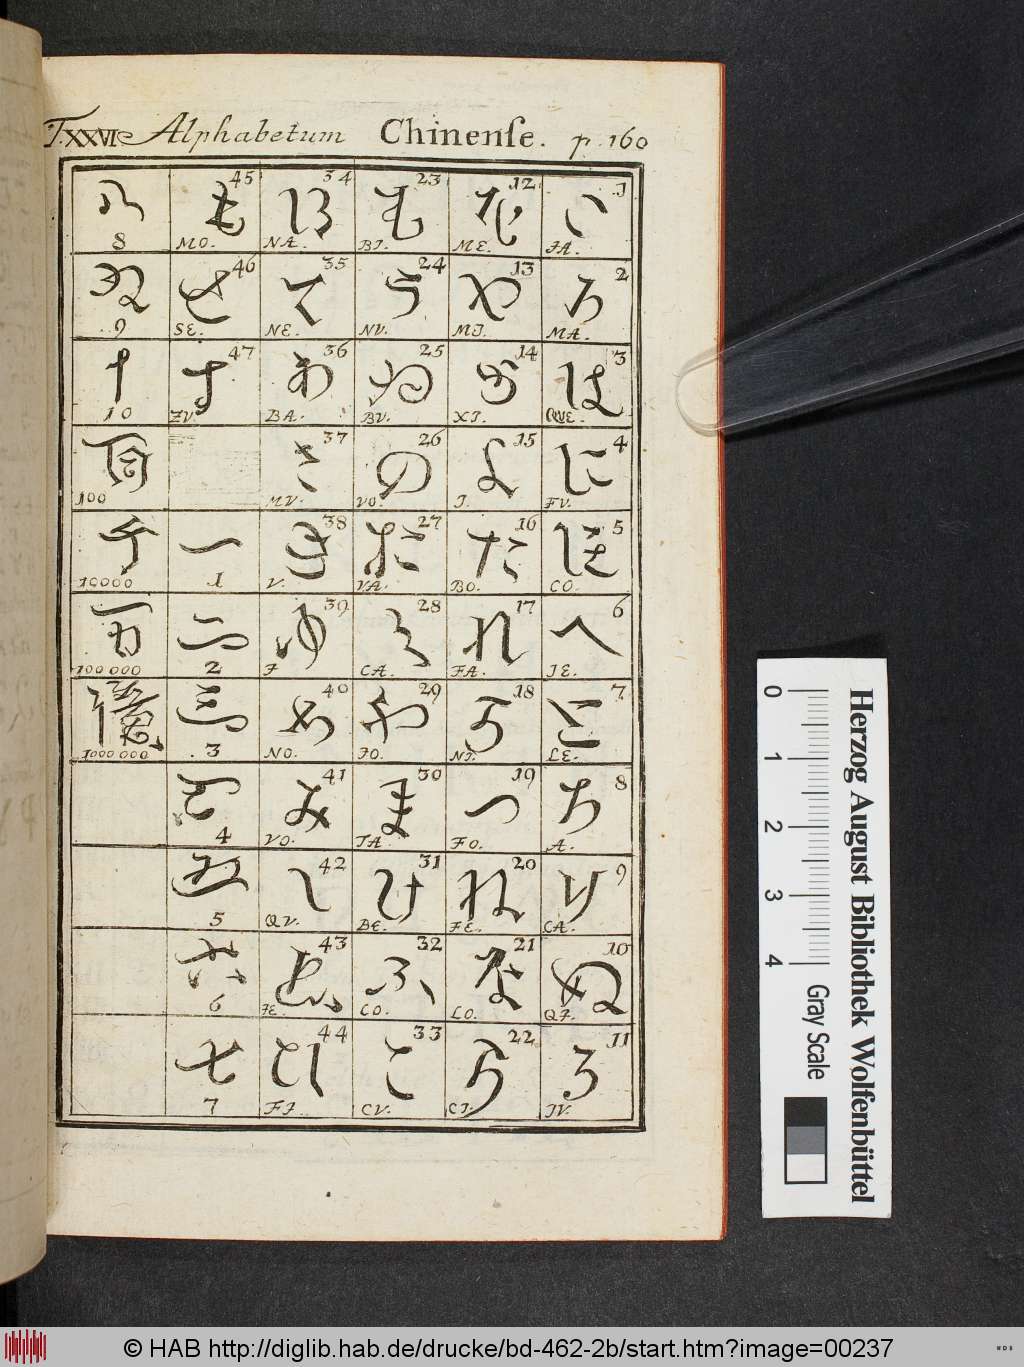 T.XXVI Alphabetum Chinense. p. 160
い 1 JA.
ろ 2 MA.
は 3 QVE.
に 4 FV.
ほ 5 CO.
へ 6 JE.
と 7 LE.
ち 8 A.
り 9 CA.
ぬ 10 QI.
る 11 JV.
を 12 ME.
わ 13 MI.
か 14 XI.
よ 15 I.
た 16 BO.
れ 17 FA.
18 NI.
つ 19 FO.
ね 20 FE.
な 21 LO.
ら 22 CI.
む 23 BI.
う 24 NV.
ゐ 25 BV.
の 26 VO.
27 VA.
く 28 CA.
や 29 JO.
ま 30 TA.
け 31 BE.
ふ 32 CO.
こ 33 CV.
34 NA.
て 35 NE.
あ 36 BA.
さ 37 MV.
き 38 V.
ゆ 39 F
め 40 NO.
み 41 VO.
し 42 QV.
ゑ 43 JE.
ひ 44 FI
も 45 MO.
せ 46 SE.
す 47 ZV.
一 1
二 2
三 3
4
五 5
六 6
七 7
八 8
9
十 10
百 100
千 10000
万 100 000
億 1000 000
0 1 2 3 4
Gray Scale
Herzog August Bibliothek Wolfenbüttel
© HAB http://diglib.hab.de/drucke/bd-462-2b/start.htm?image=00237